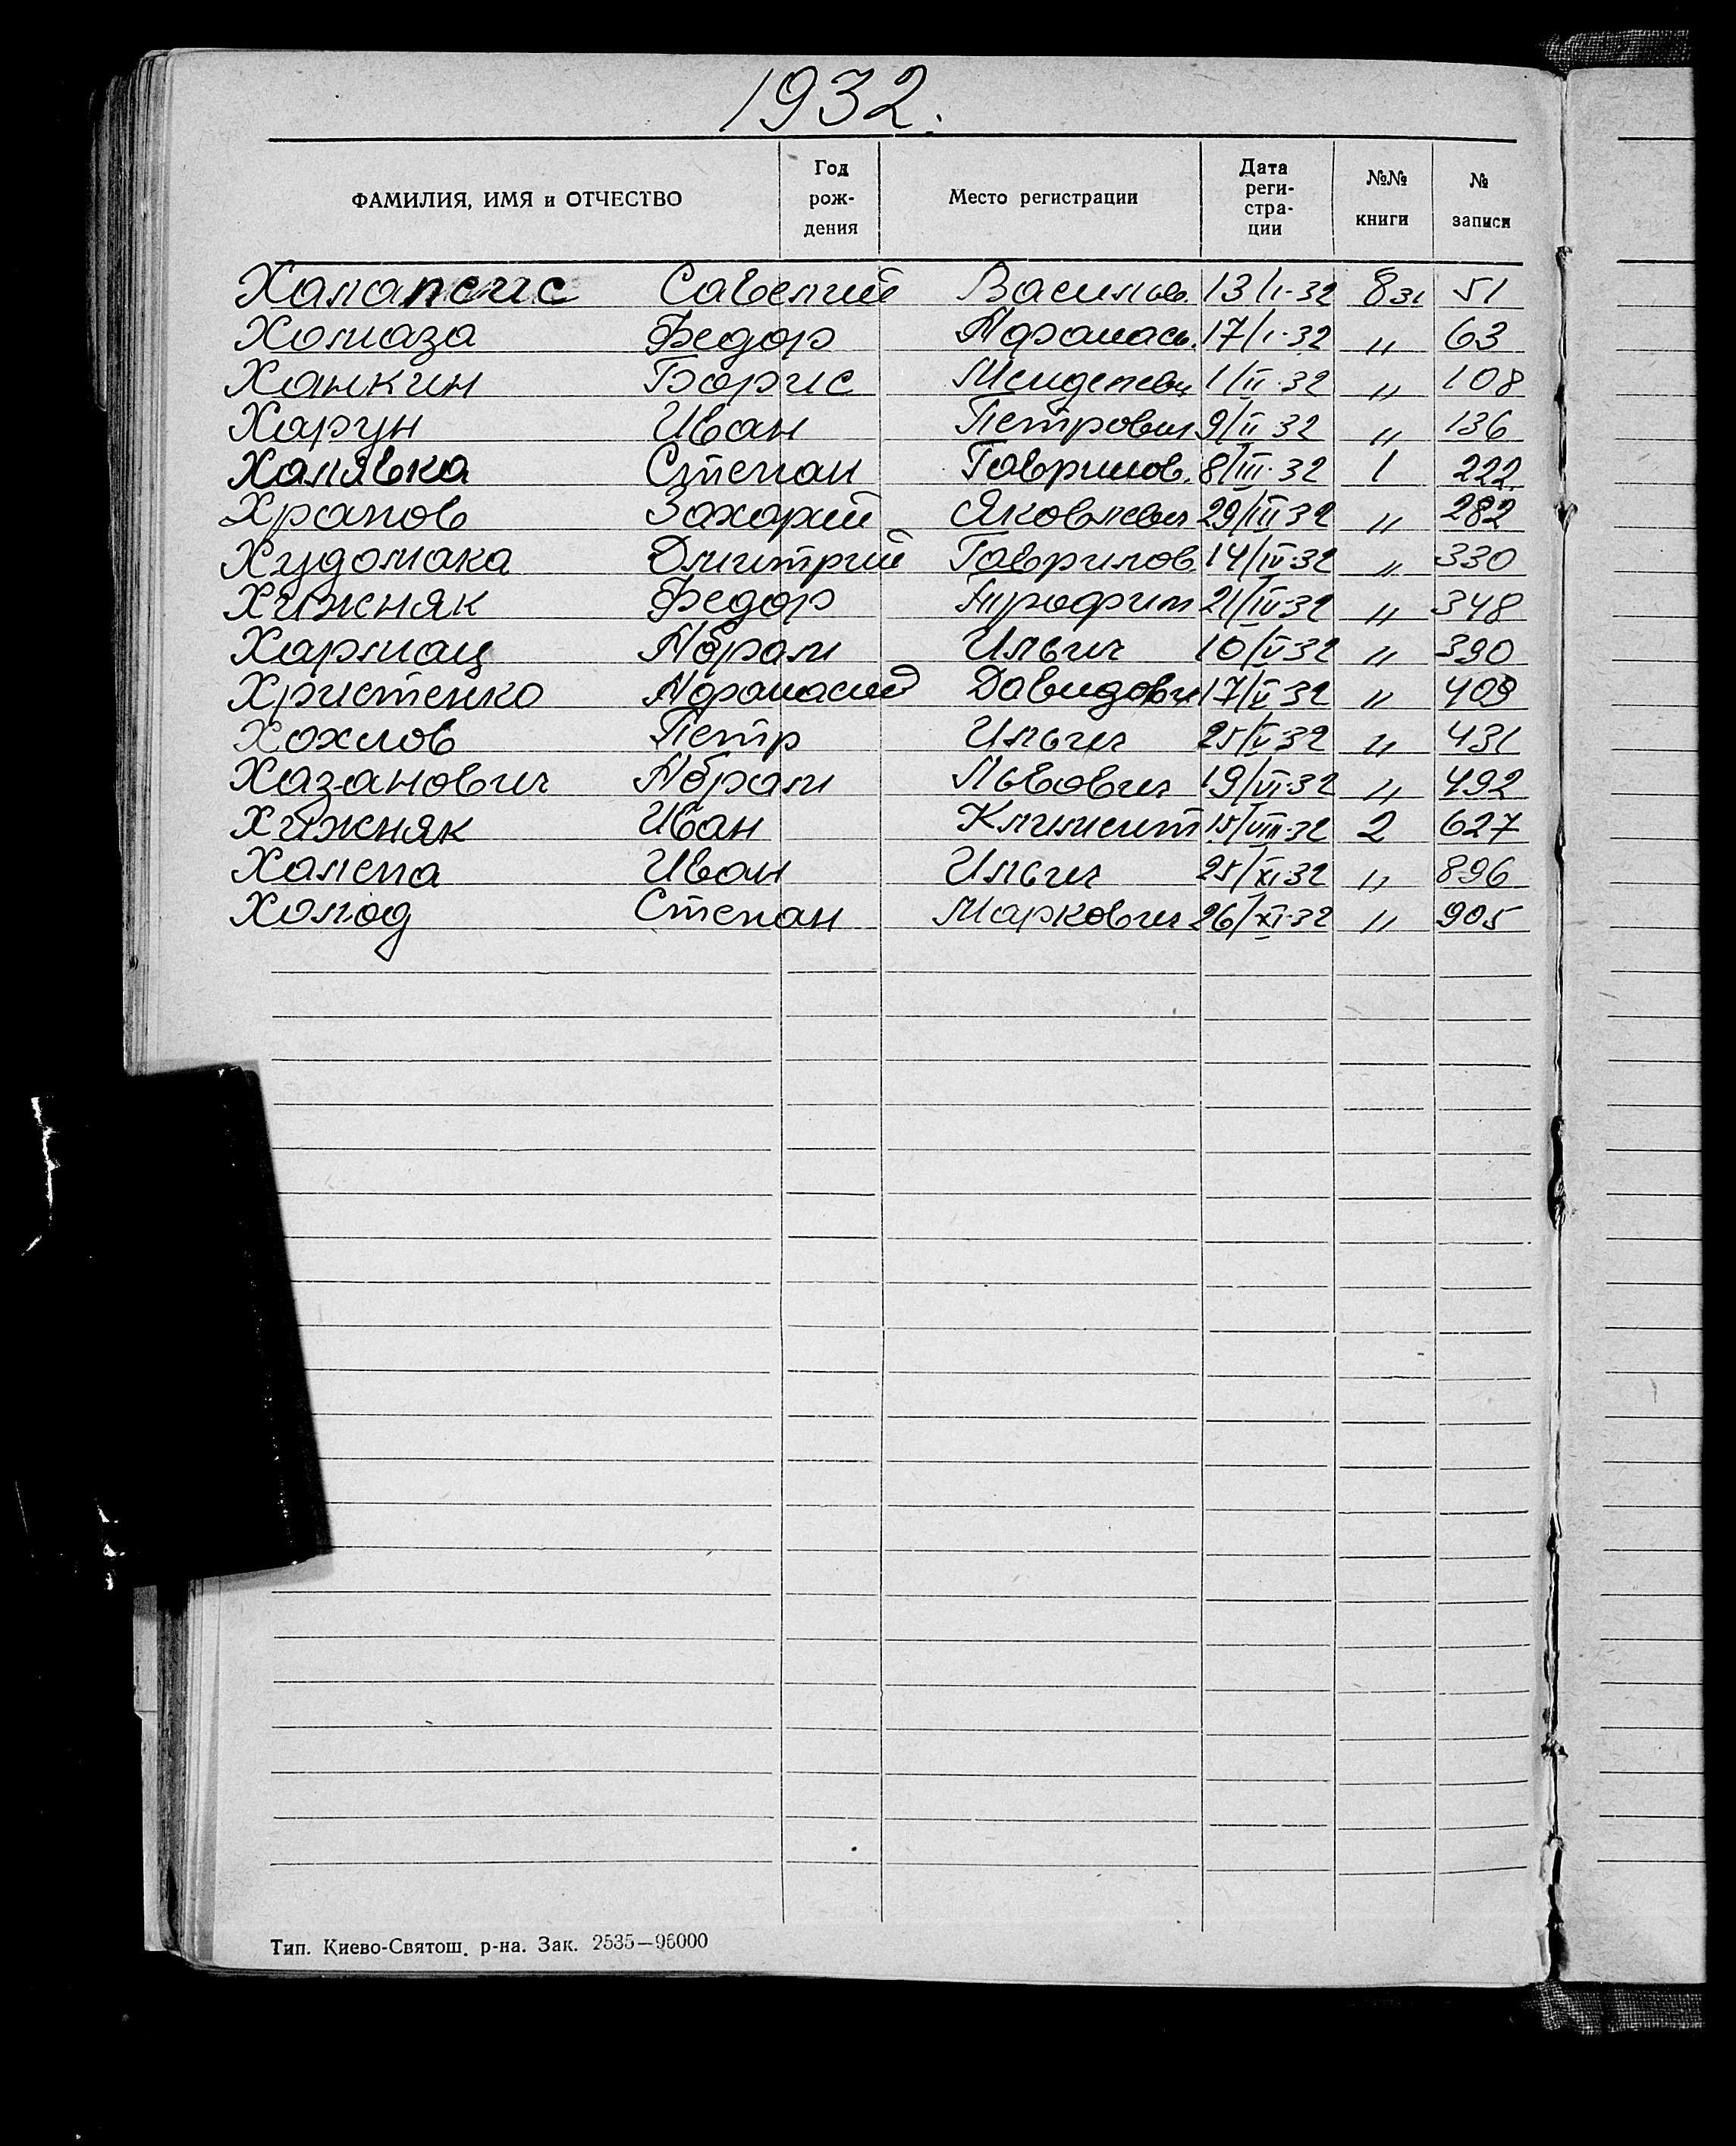 1932.
ФАМИЛИЯ, ИМЯ и ОТЧЕСТВО Год рож- дения Место регистрации Дата реги- стра- ции №№ книги № записи
Халапсис Савелий Васильев. 13/I-32 8 31 51
Хомаза Федор Афанась. 17/I-32 " 63
Ханкин Борис 1/II-32 " 108
Харун Иван Петрович 9/II 32 " 136
Халявка Степан Гаврилов. 8/III-32 1 222
Храпов Захарий Яковлевич 29/III 32 " 282
Худомака Дмитрий Гаврилов 14/IV-32 " 330
Хижняк Федор 21/IV 32 " 348
Хармац Абрам Ильич 10/V 32 " 390
Христенко Афанасий Давидович 17/V 32 " 409
Хохлов Петр Ильич 25/V 32 " 431
Хазанович Абрам Львович 19/VI-32 " 492
Хижняк Иван Климент 15/VIII-32 2 627
Халепа Иван Ильич 25/XI 32 " 896
Холод Степан Маркович 26/XI-32 " 905
Тип. Киево-Святош. р-на. Зак. 2535—96000